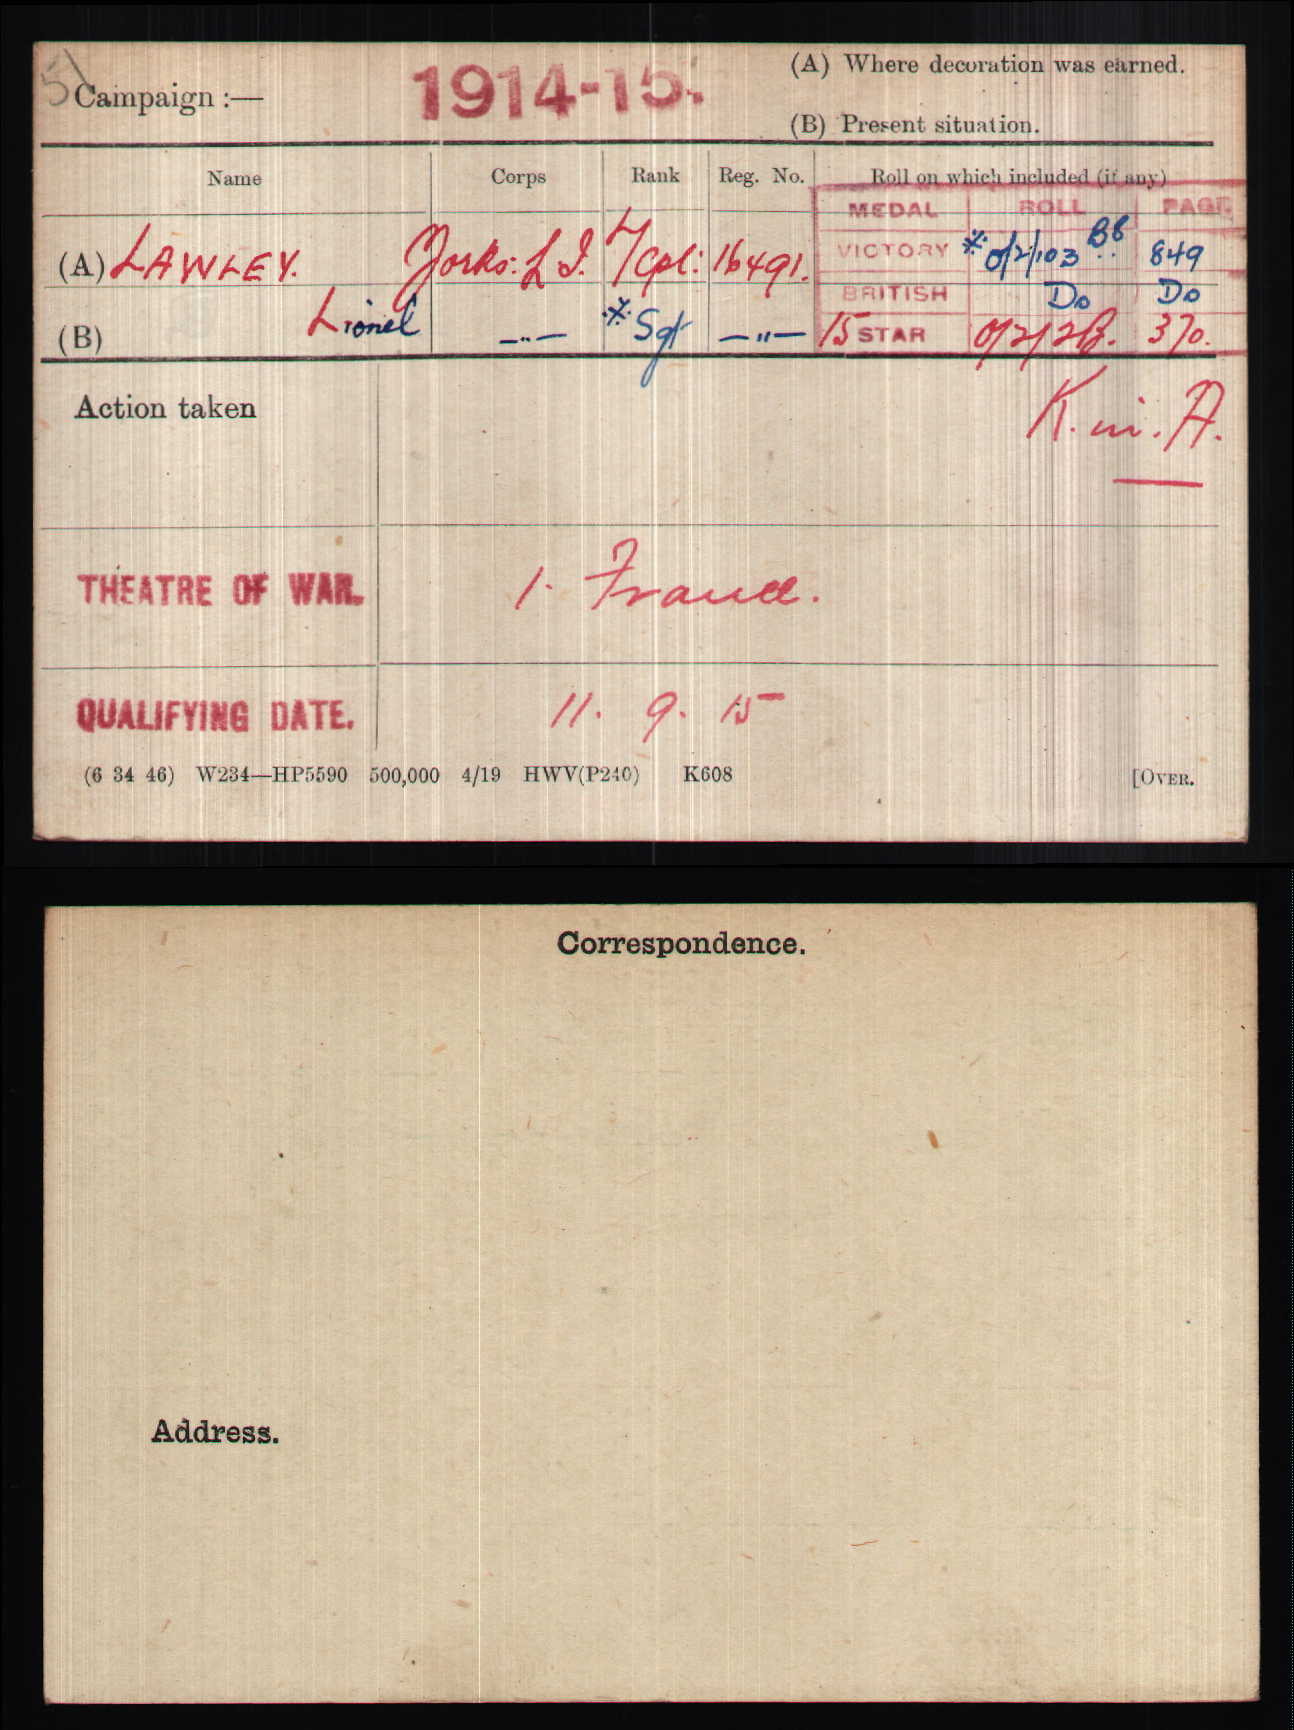 51
Campaign :— 1914-15. (A) Where decoration was earned.
(B) Present situation.
Name Corps Rank Reg. No. Roll on which included (if any)
MEDAL ROLL PAGE
(A) LAWLEY. Yorks: L I. L/Cpl: 16491. VICTORY * O/2/103 B8 849
BRITISH Do Do
(B) Lionel —"— * Sgt —"— 15 STAR O/2/2B. 370.
Action taken K. in. A.
THEATRE OF WAR. 1. France.
QUALIFYING DATE. 11. 9. 15
(6 34 46) W234—HP5590 500,000 4/19 HWV(P240) K608 [OVER.
Correspondence.
Address.